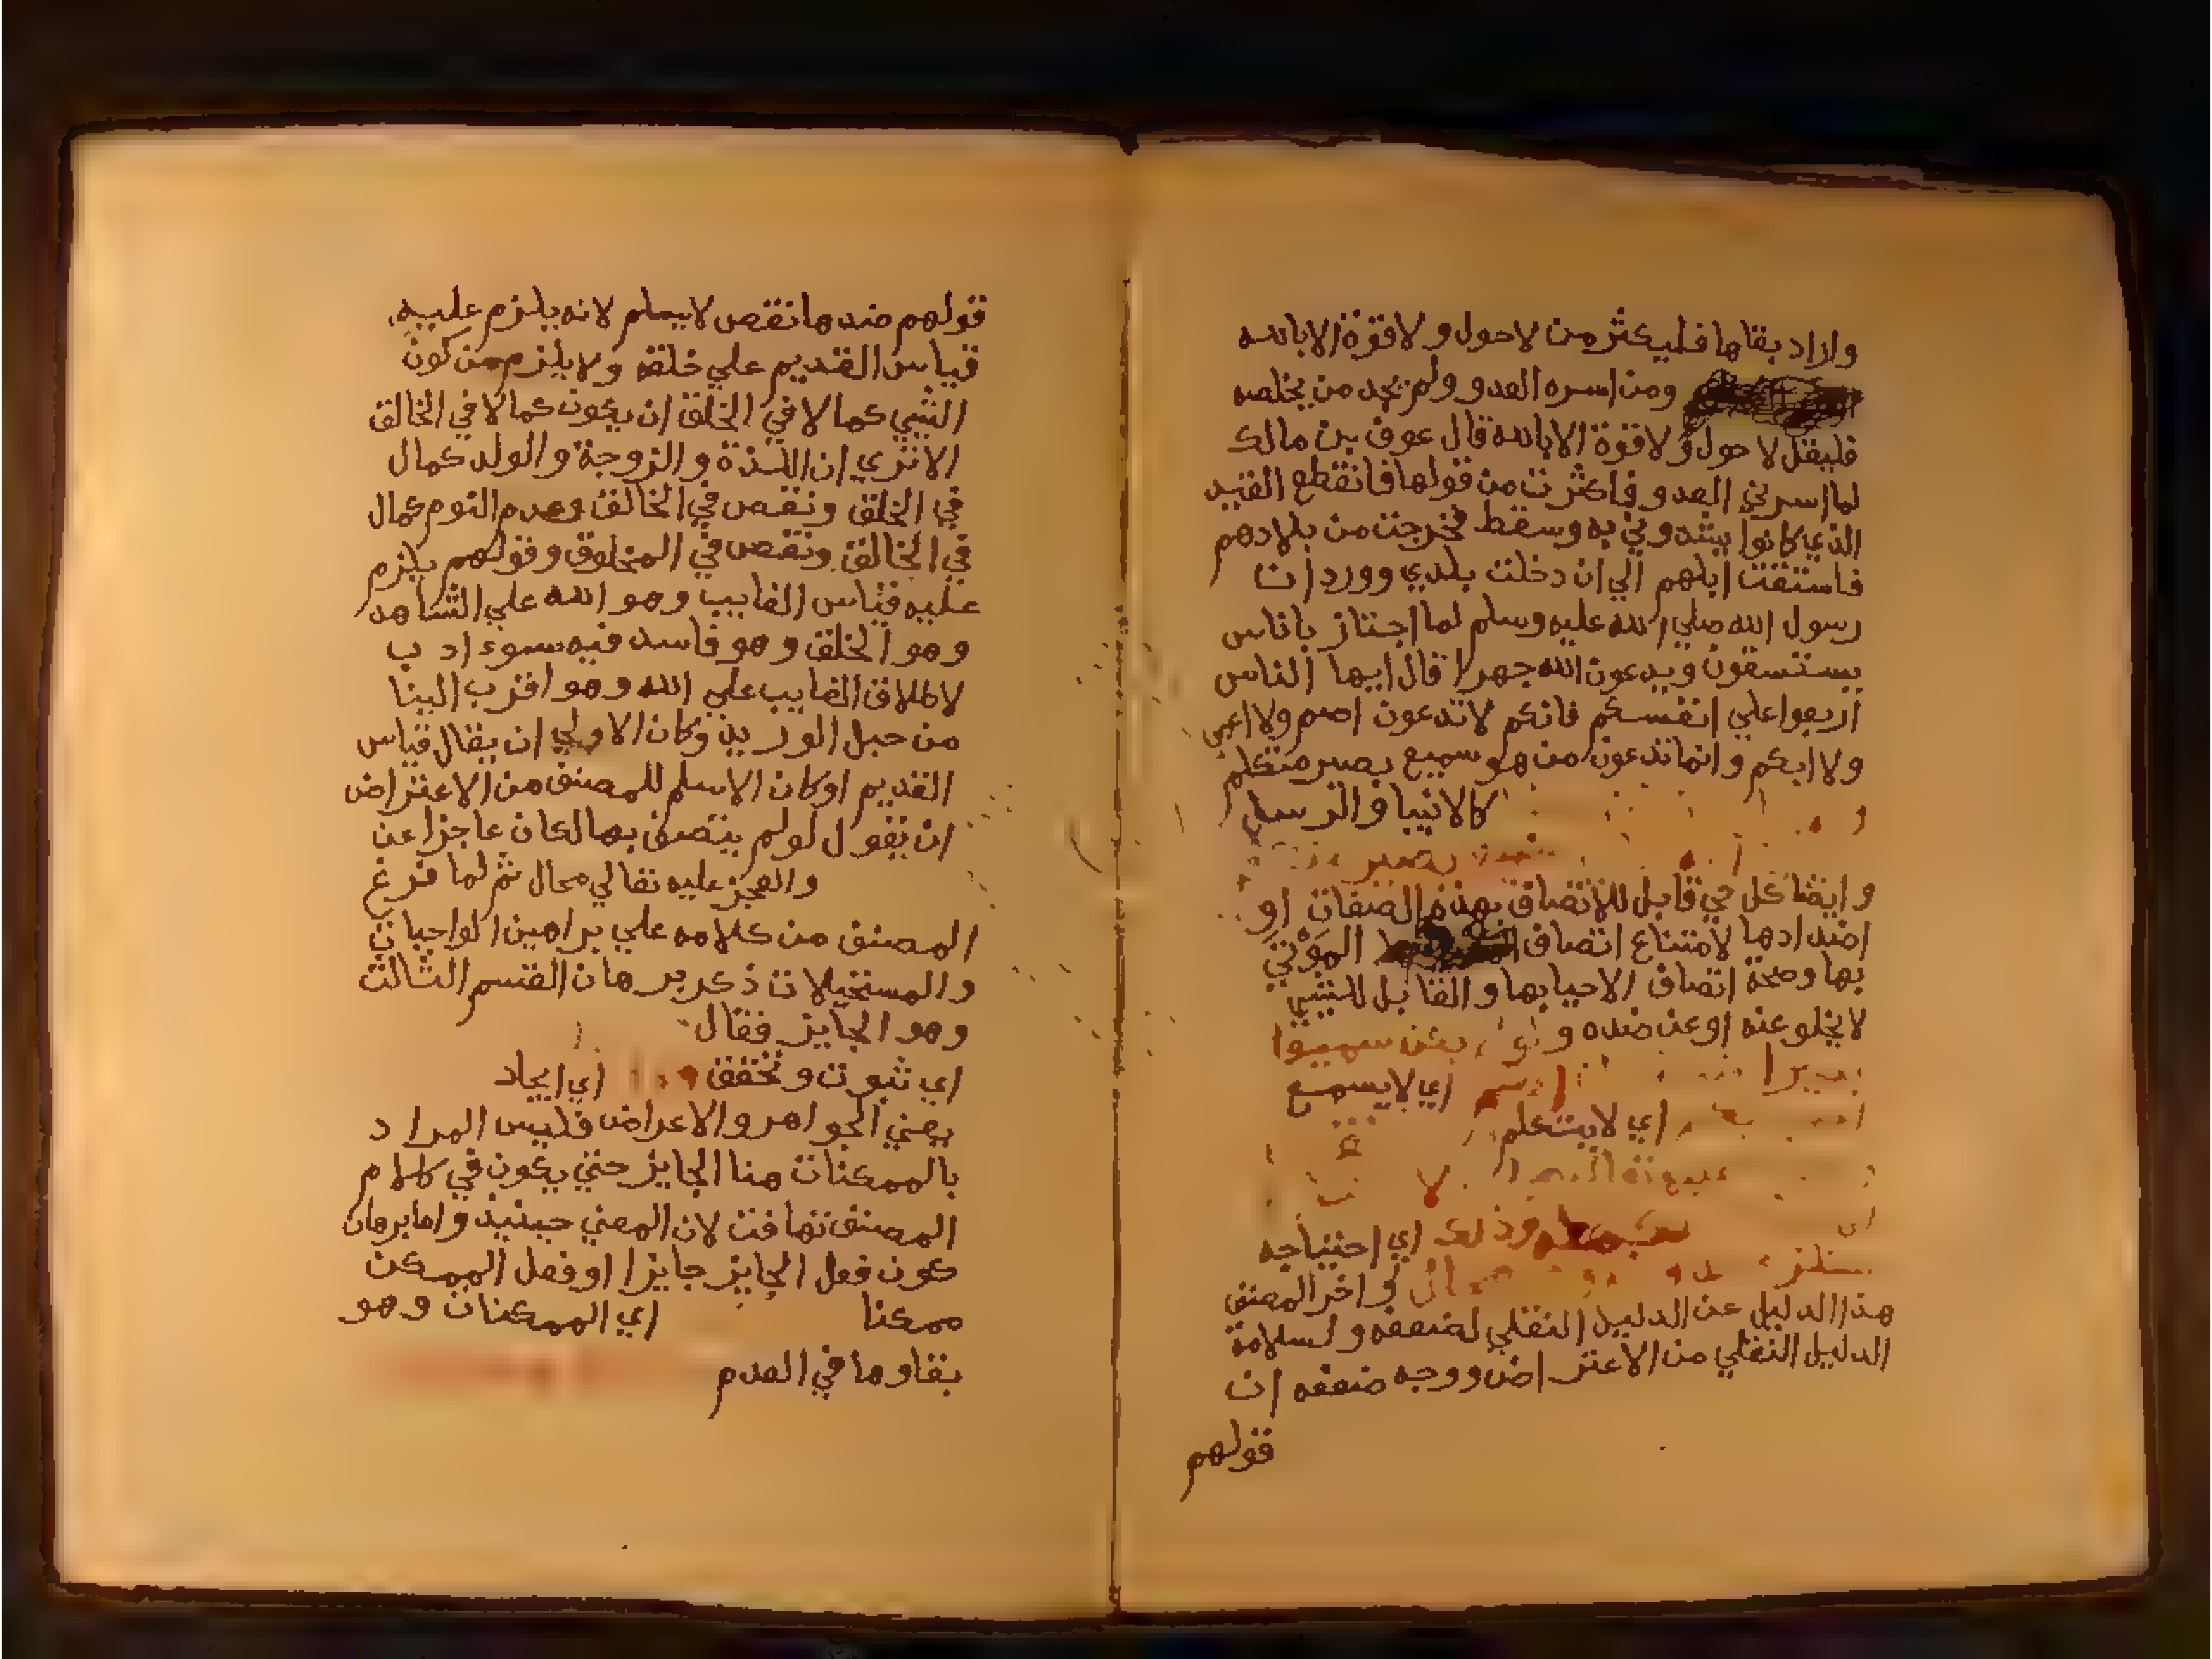 واراد بقاها فليكثر من لاحول ولا قوة الا بالله
ومن اسره العدو ولم يجد من يخلصه
فليقل لا حول ولا قوة الا بالله قال عوف بن مالك
لما اسرني العدو فاكثرت من قولها فانقطع القيد
الذي كانوا يشدوني به وسقط فخرجت من بلادهم
فاستقت ابلهم الي ان دخلت بلدي وورد ان
رسول الله صلي الله عليه وسلم لما اجتاز باناس
يستسقون ويدعون الله جهرا قال ايها الناس
اربعوا علي انفسكم فانكم لا تدعون اصم ولا اعمي
ولا ابكم وانما تدعون من هو سميع بصير متكلم
كالانبيا والرسل
بصير
وايضا كل حي قابل للاتصاف بهذه الصفات او
اضدادها لامتناع اتصاف الموتي
بها وصحة اتصاف الاحيا بها والقابل للشيي
لا يخلو عنه او عن ضده و
اي لا يسمع
اي لا يتكلم
وذلك اي احتياجه
واخر المصنف
هذا الدليل عن الدليل النقلي لضعفه ولسلامة
الدليل النقلي من الاعتراض ووجه ضعفه ان
قولهم
قولهم ضدها نقص لا يسلم لانه يلزم عليه
قياس القديم علي خلقه ولا يلزم من كون
الشيي كمالا في الخلق ان يكون كمالا في الخالق
الا تري ان اللذة والزوجة والولد كمال
في الخلق ونقص في الخالق وعدم النوم كمال
في الخالق ونقص في المخلوق وقولهم يلزم
عليه قياس الغايب وهو الله علي الشاهد
وهو الخلق وهو فاسد فيه سوء اد ب
لاطلاق الغايب علي الله وهو اقرب الينا
من حبل الوريد وكان الاولي ان يقال قياس
القديم اوكان الاسلم للمصنف من الاعتراض
ان يقول لو لم يتصف بها لكان عاجزا عن
والعجز عليه تعالي محال ثم لما فرغ
المصنف من كلامه علي براهين الواجبات
والمستحيلات ذكر برهان القسم الثالث
وهو الجايز فقال
اي ثبوت وتحقق اي ايجاد
يعني الجواهر والاعراض فليس المراد
بالممكنات هنا الجايز حتي يكون في كلام
المصنف تهافت لان المعني حينيذ واما برهان
كون فعل الجايز جايزا او فعل الممكن
ممكنا اي الممكنات وهو
بقاوها في العدم